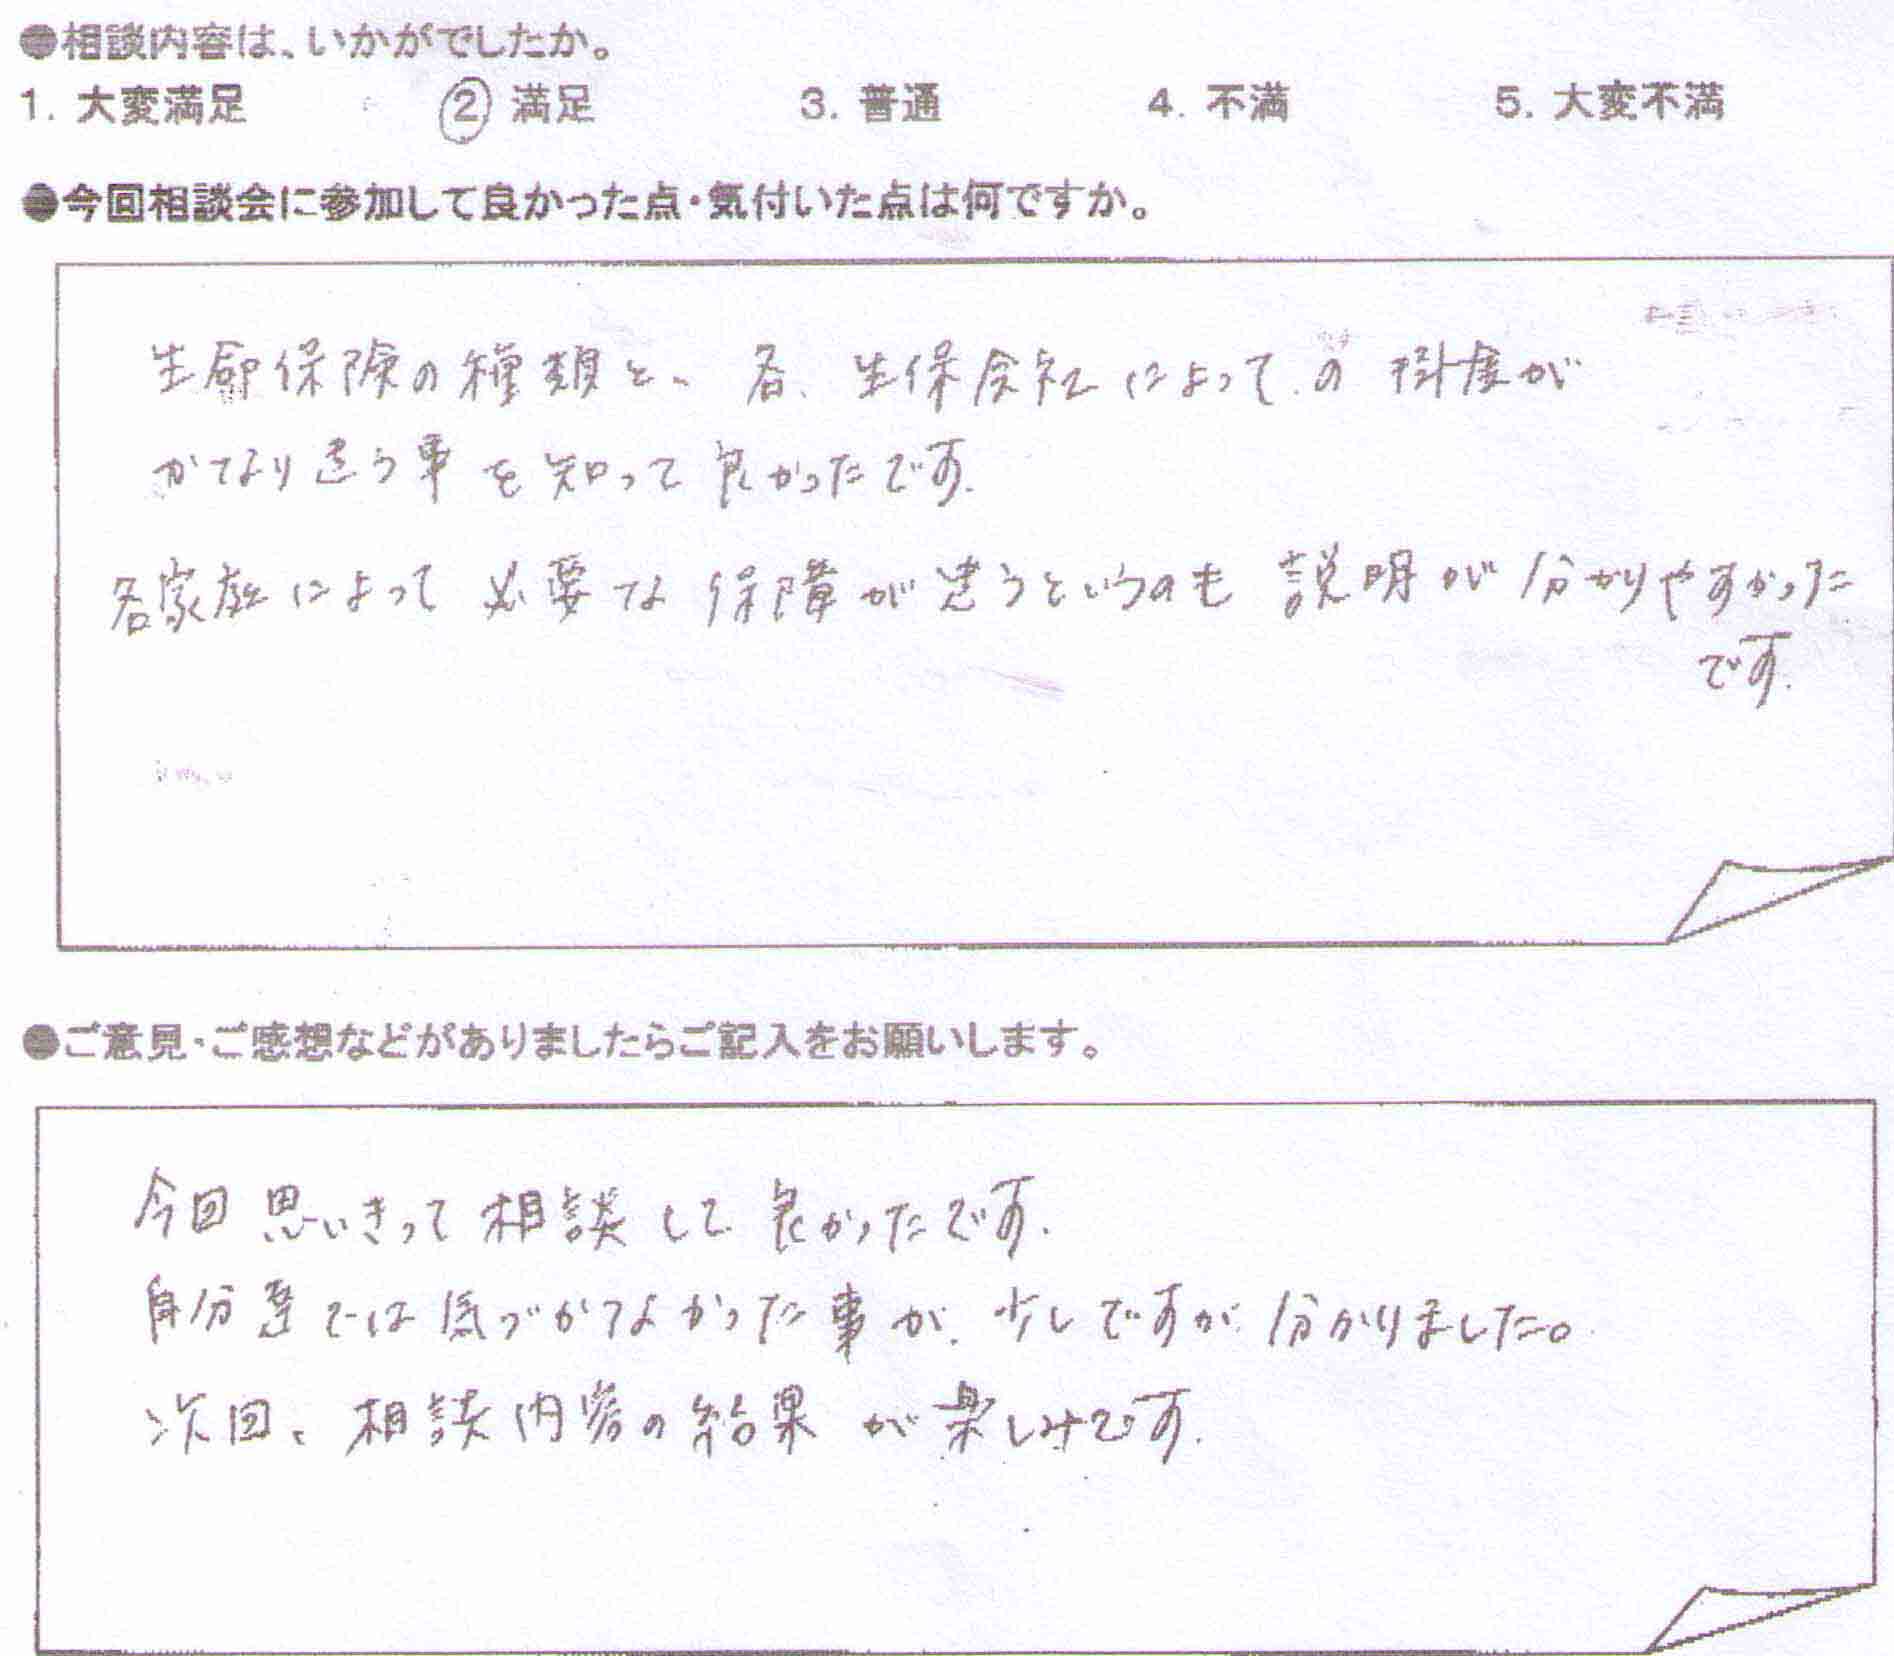 ●相談内容は、いかがでしたか。
1. 大変満足 ② 満足 3. 普通 4. 不満 5. 大変不満
●今回相談会に参加して良かった点・気付いた点は何ですか。
生命保険の種類と、各、生保会社によっての が
かなり違う事を知って良かったです.
各家庭によって必要な保障が違うというのも説明が分かりやすかった
です.
●ご意見・ご感想などがありましたらご記入をお願いします。
今回思いきって相談して良かったです.
自分達では気づかなかった事が、少しですが分かりました。
次回、相談内容の結果が楽しみです.